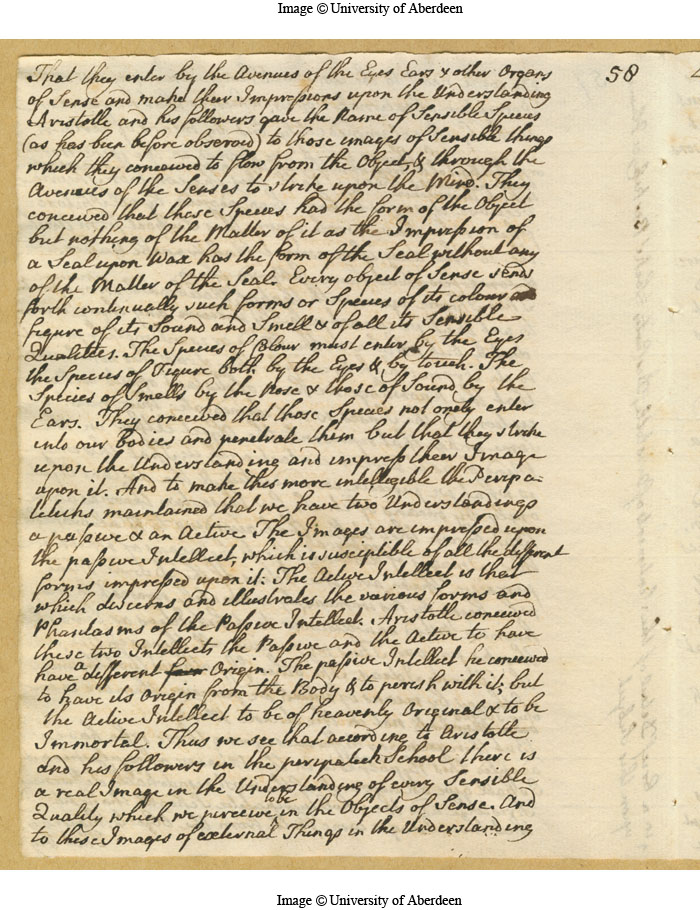 Image © University of Aberdeen
58
That they enter by the Avenues of the Eyes Ears & other Organs
of Sense and make their Impressions upon the Understanding
Aristotle and his followers gave the Name of Sensible Species
(as has been before observed) to those images of Sensible things
which they conceived to flow from the Object, & through the
Avenues of the Senses to strike upon the Mind. They
conceived that these Species had the form of the Object
but nothing of the Matter of it as the Impression of
a Seal upon Wax has the form of the Seal without any
of the Matter of the Seal. Every object of Sense sends
forth continually such forms or Species of its colour and
figure of its Sound and Smell & of all its Sensible
Qualities. The Species of Colour must enter by the Eyes
the Species of Figure both by the Eyes & by touch. The
Species of Smells by the Nose & those of Sound by the
Ears. They conceived that those Species not onely enter
into our bodies and penetrate them but that they strike
upon the Understanding and impress their Image
upon it. And to make this more intelligible the Peripa-
teticks maintained that we have two Understandings
a passive & an Active The Images are impressed upon
the passive Intellect, which is susciptible of all the different
forms impressed upon it: The Active Intellect is that
which discerns and illustrates the various forms and
Phantasms of the Passive Intellect. Aristotle conceived
these two Intellects the Passive and the Active to have
have a different Origin. The passive Intellect he conceived
to have its Origin from the Body & to perish with it; but
the Active Intellect to be of heavenly Original & to be
Immortal. Thus we see that according to Aristotle
and his followers in the peripateck School there is
a real Image in the Understanding of every Sensible
Quality which we perceive to be in the Objects of Sense. And
to these Images of external Things in the Understanding
Image © University of Aberdeen